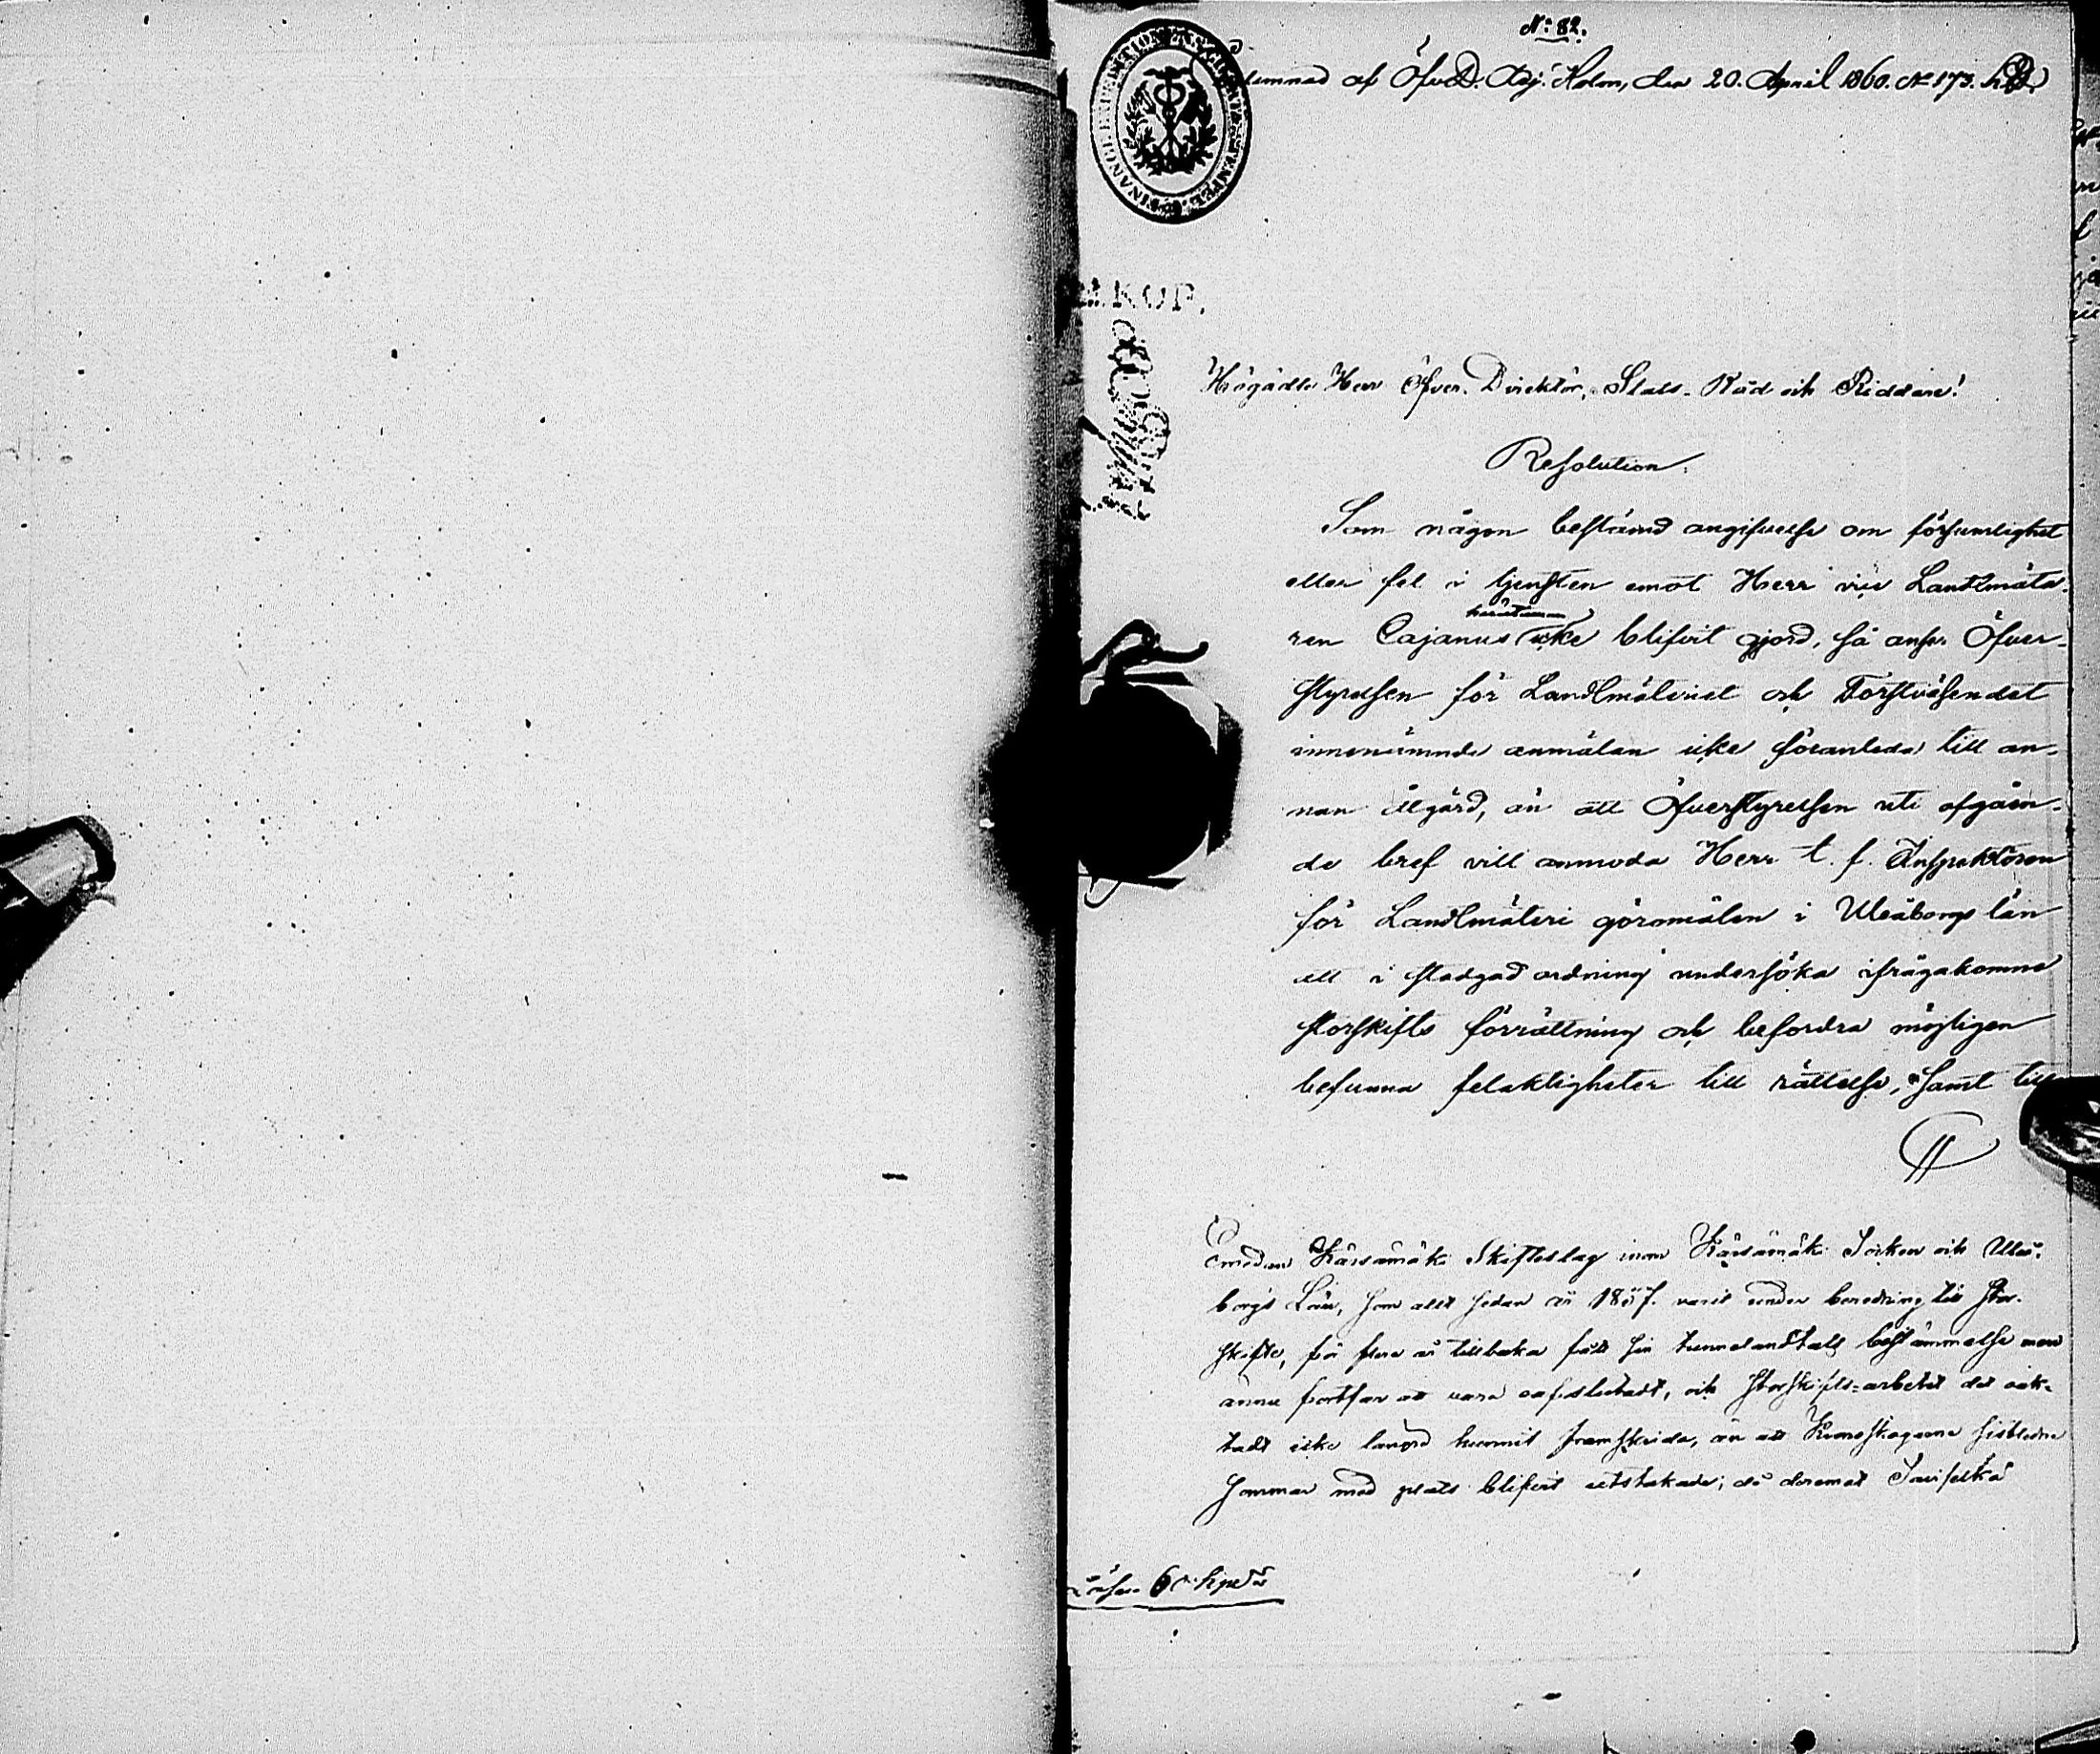 N:o 82.
lemnad af Öfv.D. Adj. Holm, den 20. April 1860. N:o 173.
FINANCE EXPEDITION
KOP.
Högädle Herr Öfver-Direktör, Stats-Råd och Riddare!
Resolution.
Som någon bestämd angifvelse om försumlighet
eller fel i tjensten emot Herr vice Landtmäta-
ren Cajanus härutinnan icke blifvit gjord, så anser Öfver-
styrelsen för Landtmäteriet och Forstväsendet
innenämnde anmälan icke föranleda till an-
nan åtgärd, än att Öfverstyrelsen uti afgåen-
de bref vill anmoda Herr t. f. Inspektoren
för Landtmäteri göromålen i Uleåborgs län
att i stadgad ordning undersöka ifrågakomne
storskifts förrättning och befordra möjligen
befunna felaktigheter till rättelse, samt till
Emedan Kärsämäki Skifteslag inom Kärsämäki Socken och Uleå-
borgs Län, som allt sedan år 1857. varit under beredning till stor-
skifte, för flere år tillbaka fått sin tunnelandtals bestämmelse men
ännu fortfar att vara oafslutadt, och storskifts-arbetet det oak-
tadt icke längre hunnit framskrida, än att Kronoskogarne sistledne
sommar med plats blifvit utstakade; då deremot